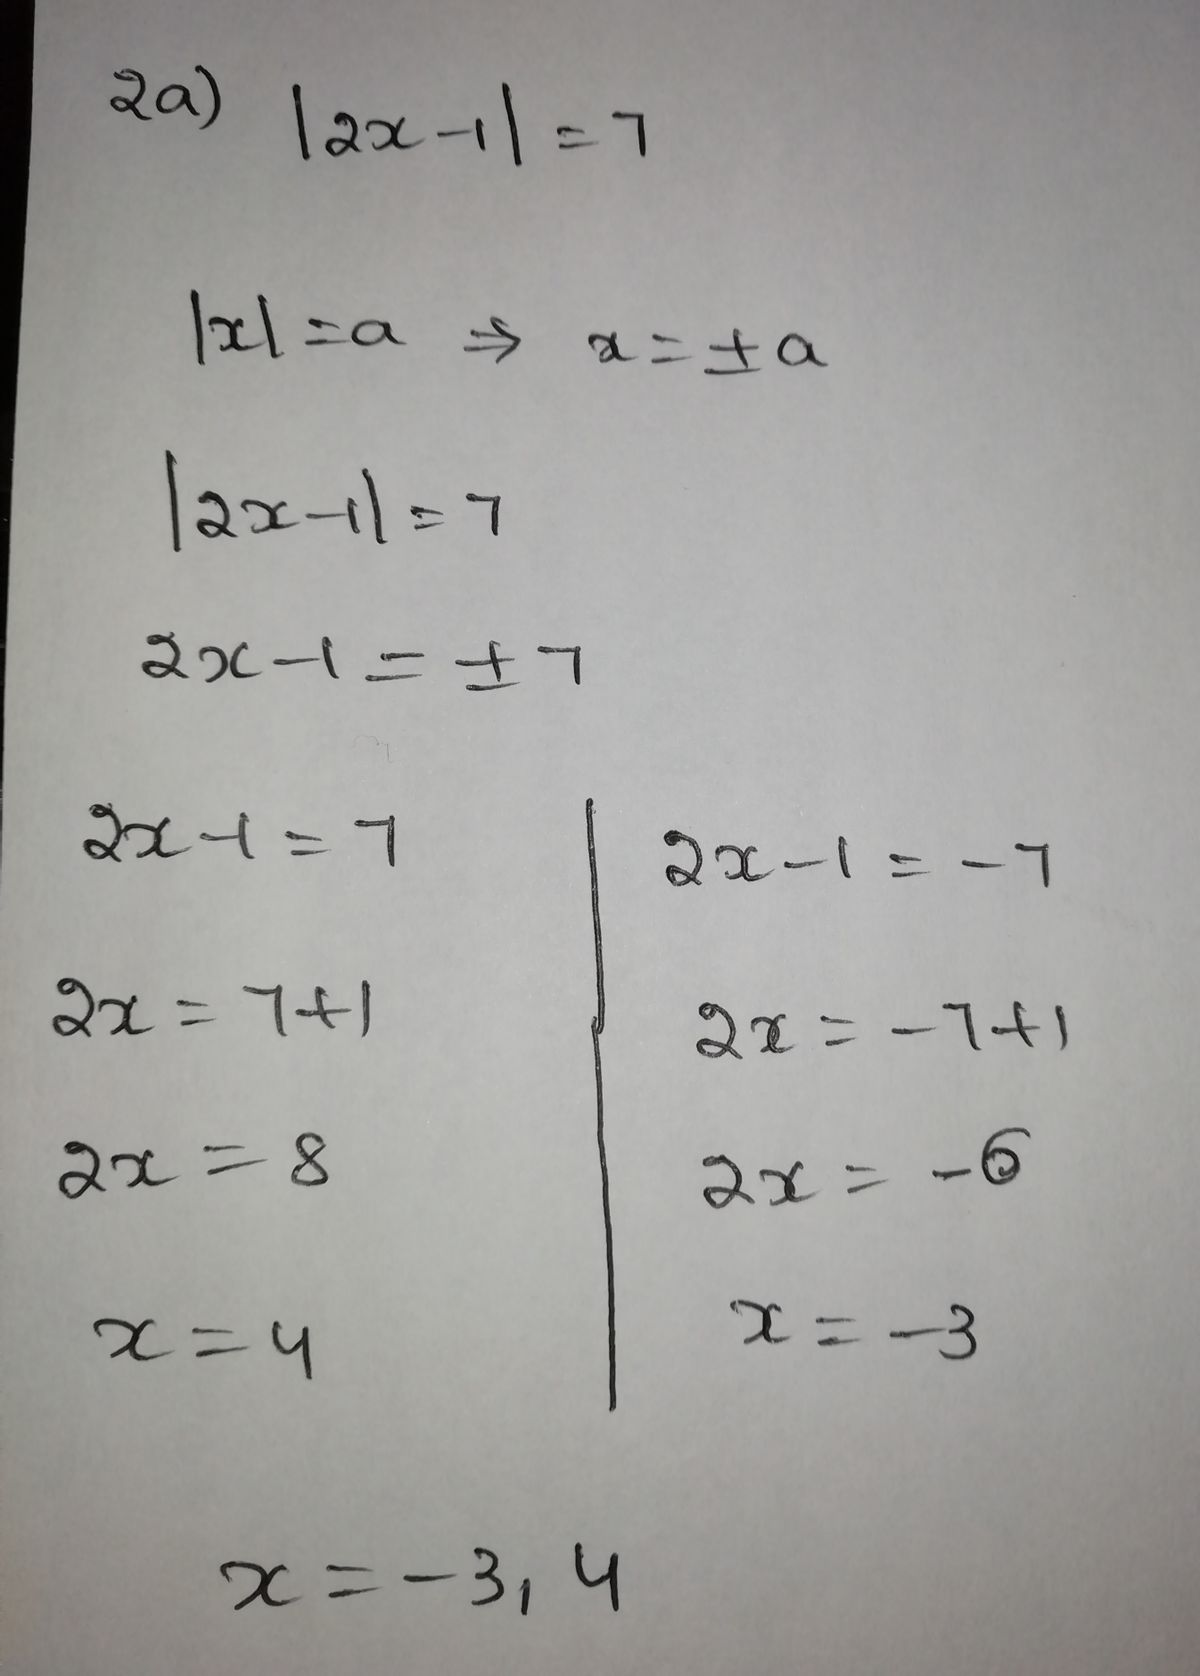 2a) |2x-1| = 7
|x| = a ⇒ x = ±a
|2x-1| = 7
2x-1 = ±7
2x-1 = 7
2x = 7+1
2x = 8
x = 4
2x-1 = -7
2x = -7+1
2x = -6
x = -3
x = -3, 4